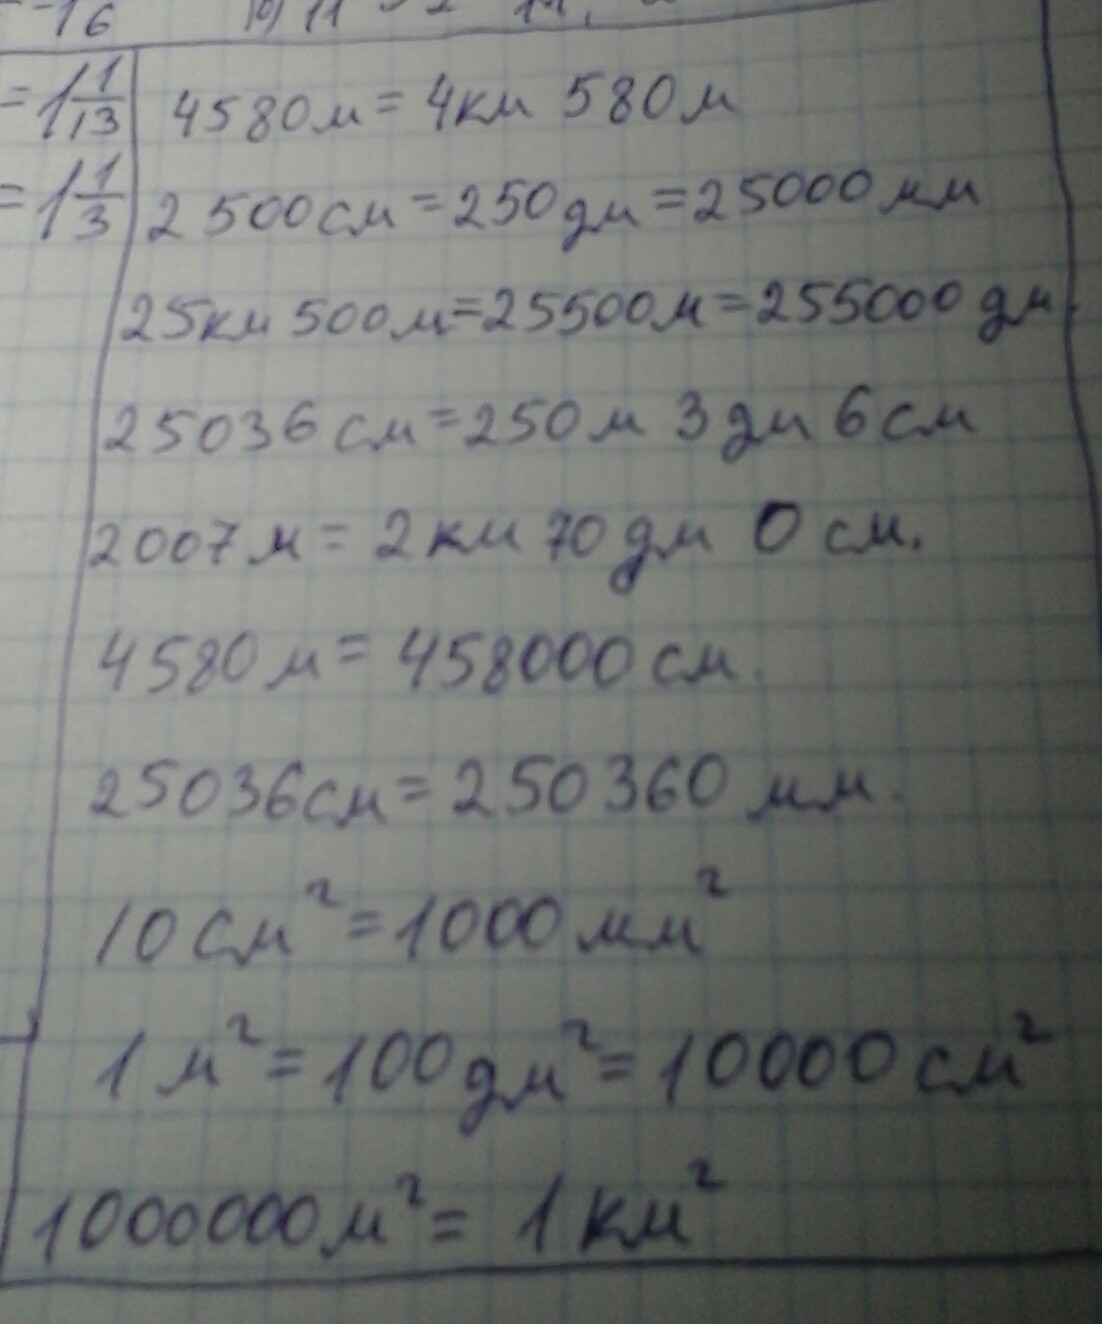 16
= 1 1/13
= 1 1/3
4580м = 4км 580м
2500см = 250дм = 25000мм
25км 500м = 25500м = 255000 дм
25036 см = 250м 3дм 6см
2007м = 2км 70дм 0 см.
4580м = 458000 см.
25036см = 250360 мм.
10см² = 1000мм²
1м² = 100дм² = 10000см²
1000000м² = 1км²